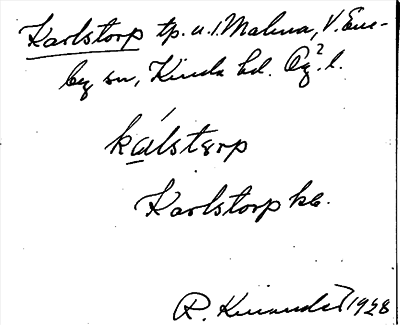 Karlstorp tp. u. 1. Malma, V. Ene-
by sn, Kinda hd. Ög. l.
kálstərp
Karlstorp kb.
R. 1928